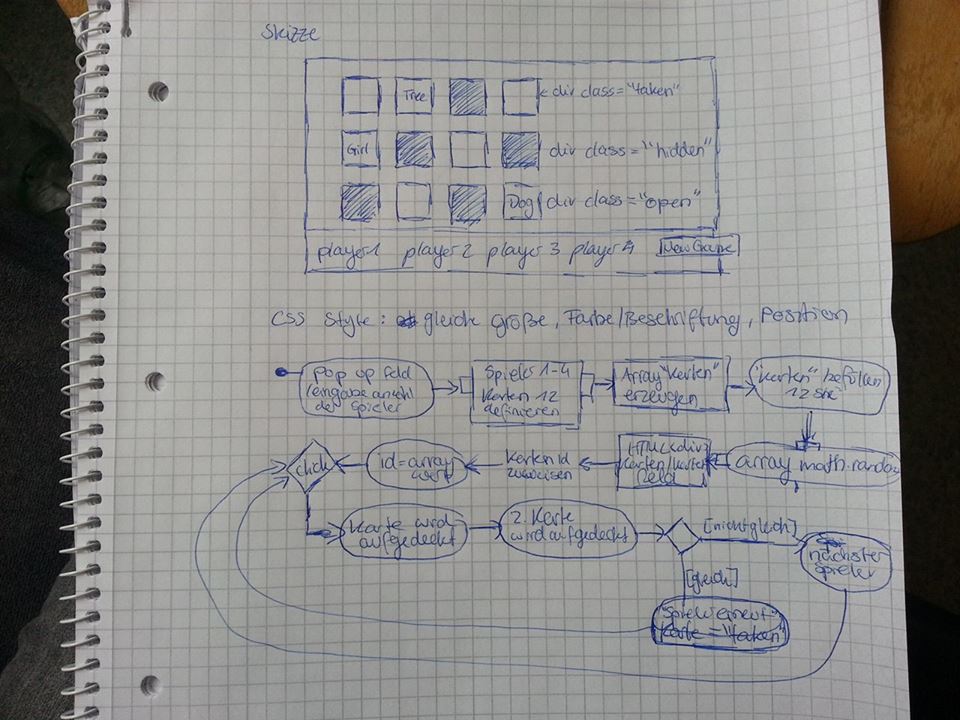 Skizze
Tree
<div class="taken"
Girl
div class="hidden"
Dog
div class="open"
player1 player2 player3 player4 New Game
CSS Style: gleiche Größe, Farbe/Beschriftung, Position
Pop up feld
(eingabe anzahl
der Spieler
Spieler 1-4
Karten 12
definieren
Array "Karten"
erzeugen
"Karten" befüllen
12 Stk
array math.random
HTML <div>
Karten/Karten
feld
Karten id
zuweisen
id = array
wert
click
Karte wird
aufgedeckt
2. Karte
wird aufgedeckt
[nicht gleich]
nächster
Spieler
[gleich]
"Spielt erneut"
Karte = "taken"